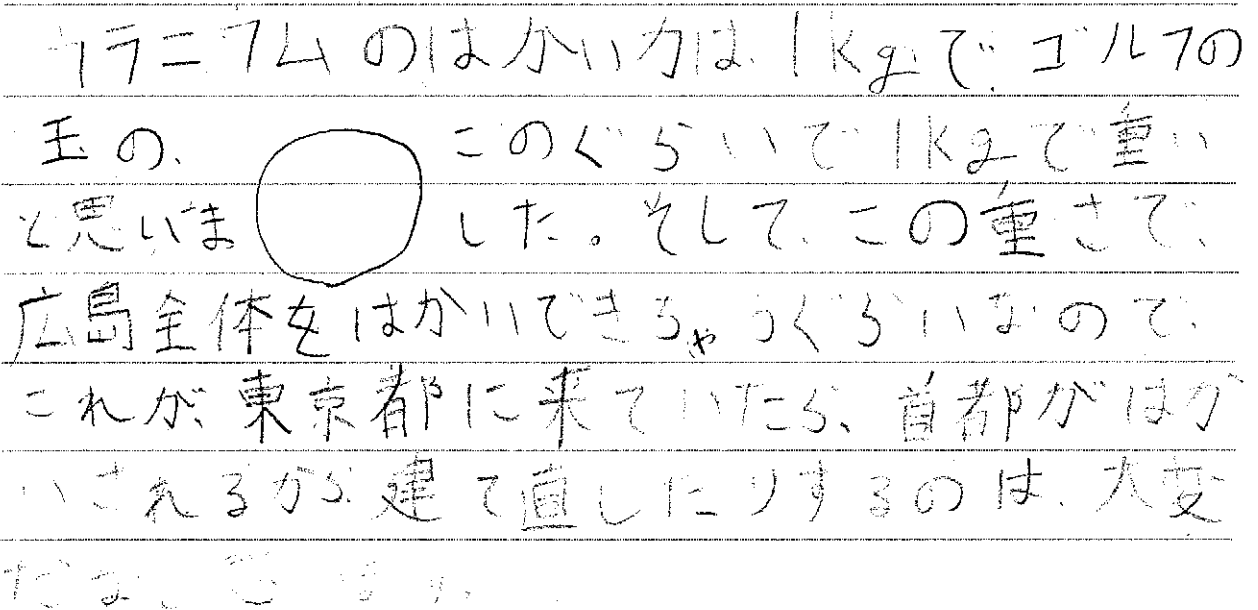 ウラニウムのはかい力は、1kgで、ゴルフの
玉の、 このぐらいで1kgで重い
と思いま した。そして、この重さで、
広島全体をはかいできちゃうぐらいなので、
これが、東京都に来ていたら、首都がはか
いされるから、建て直したりするのは、大変